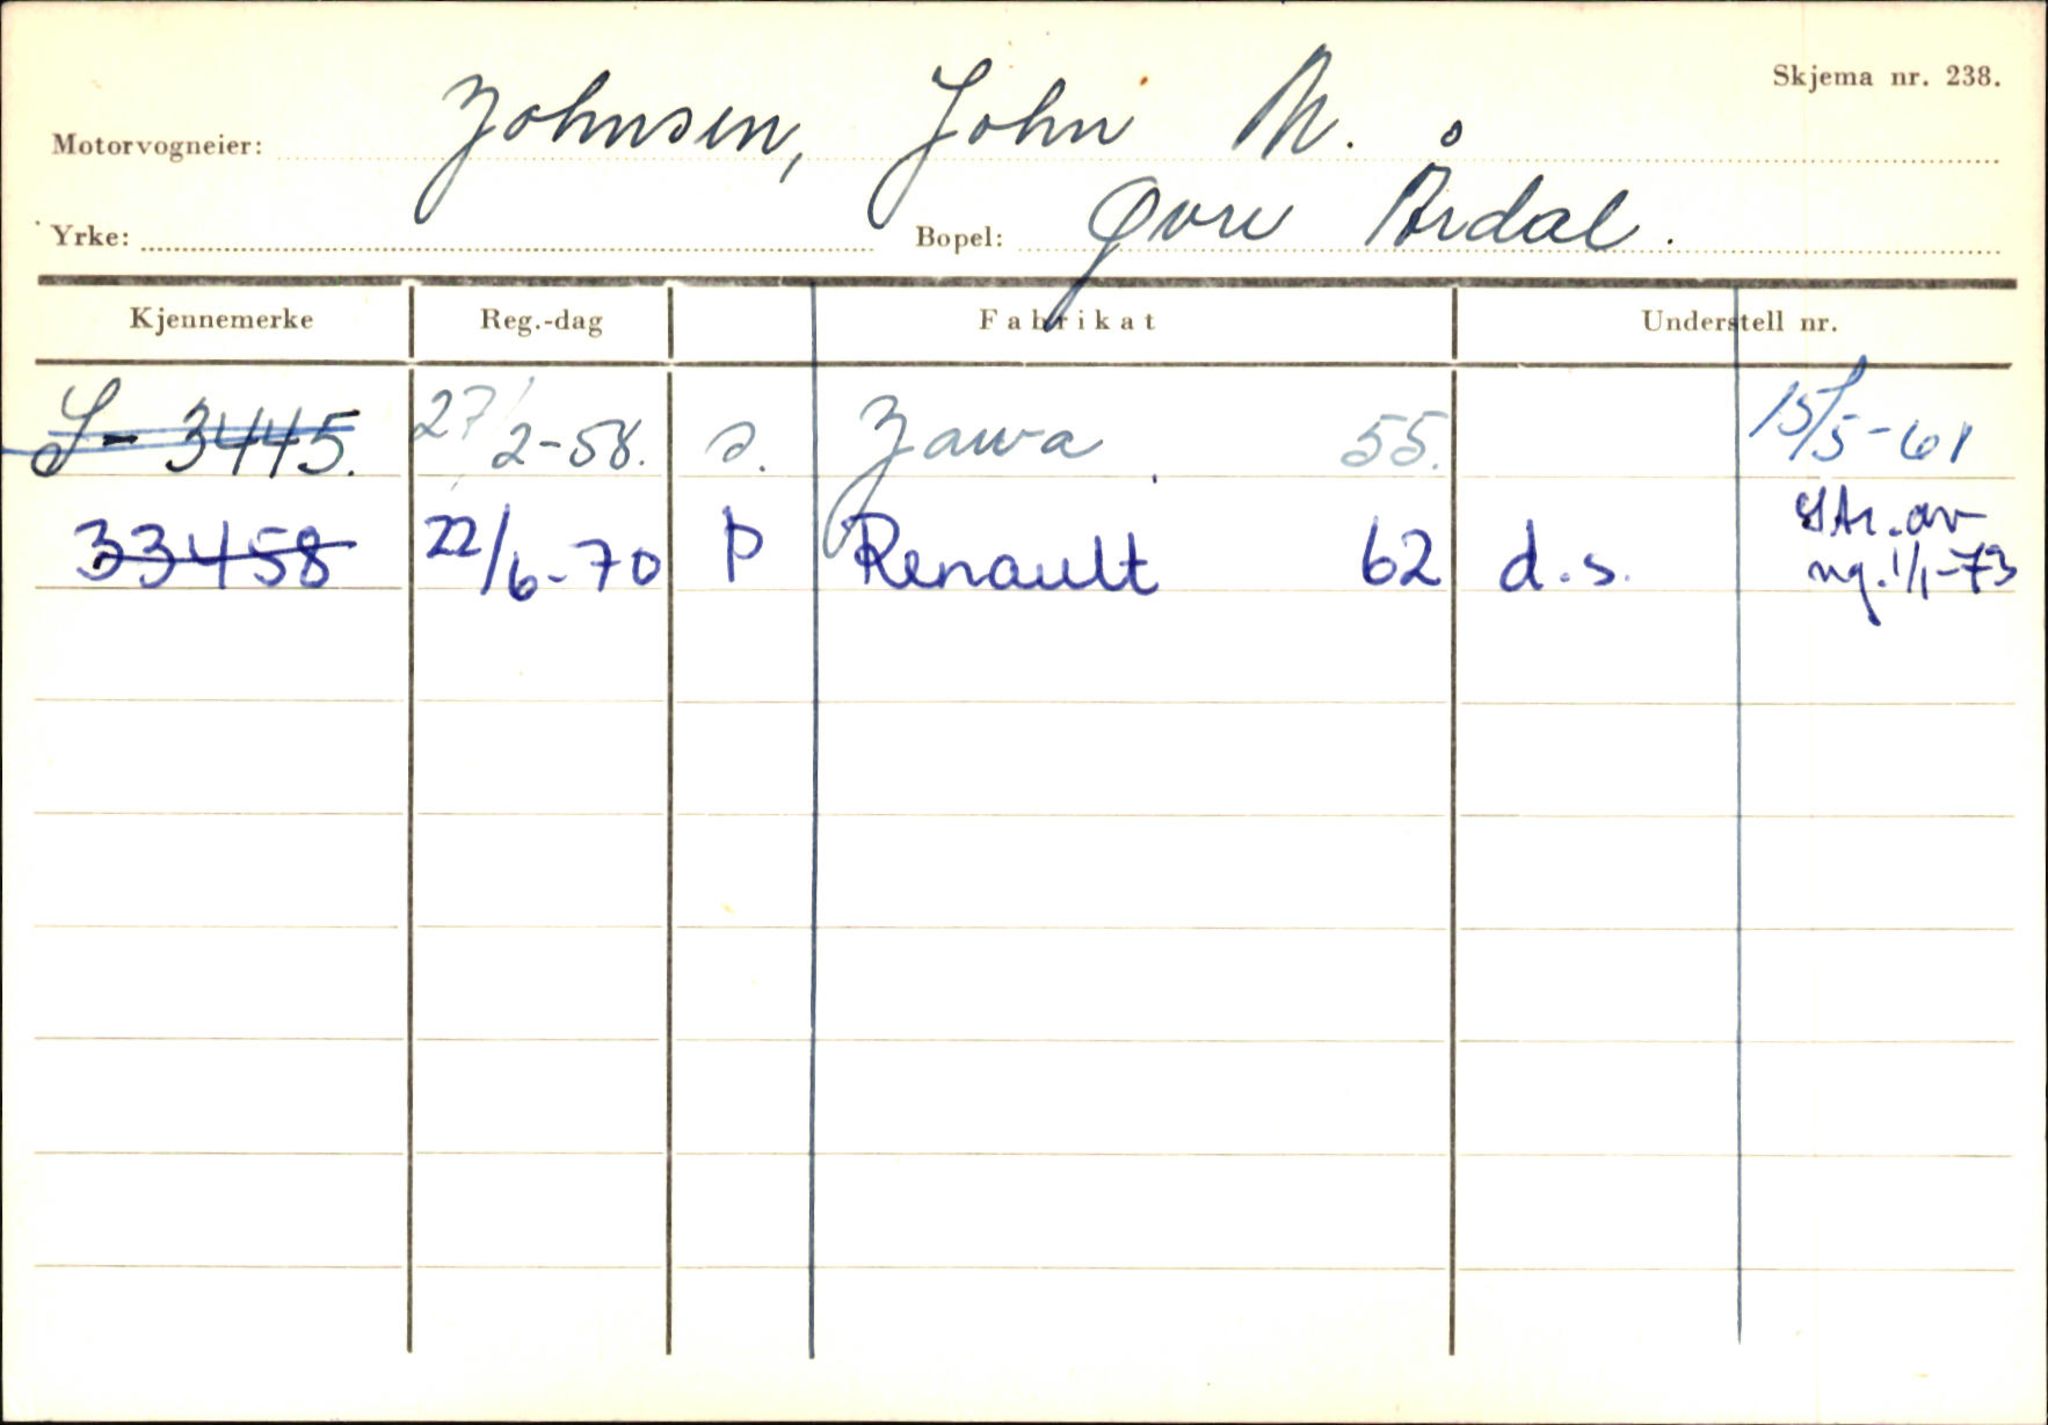 Skjema nr. 238.
Motorvogneier: Johnsen, John M.
Yrke: Bopel: Øvre Årdal.
Kjennemerke Reg.-dag Fabrikat Understell nr.
S-3445. 27/2-58. s. Jawa 55. 15/5-61
33458 22/6-70 P Renault 62 d.s. Str. av
ng. 1/1-73